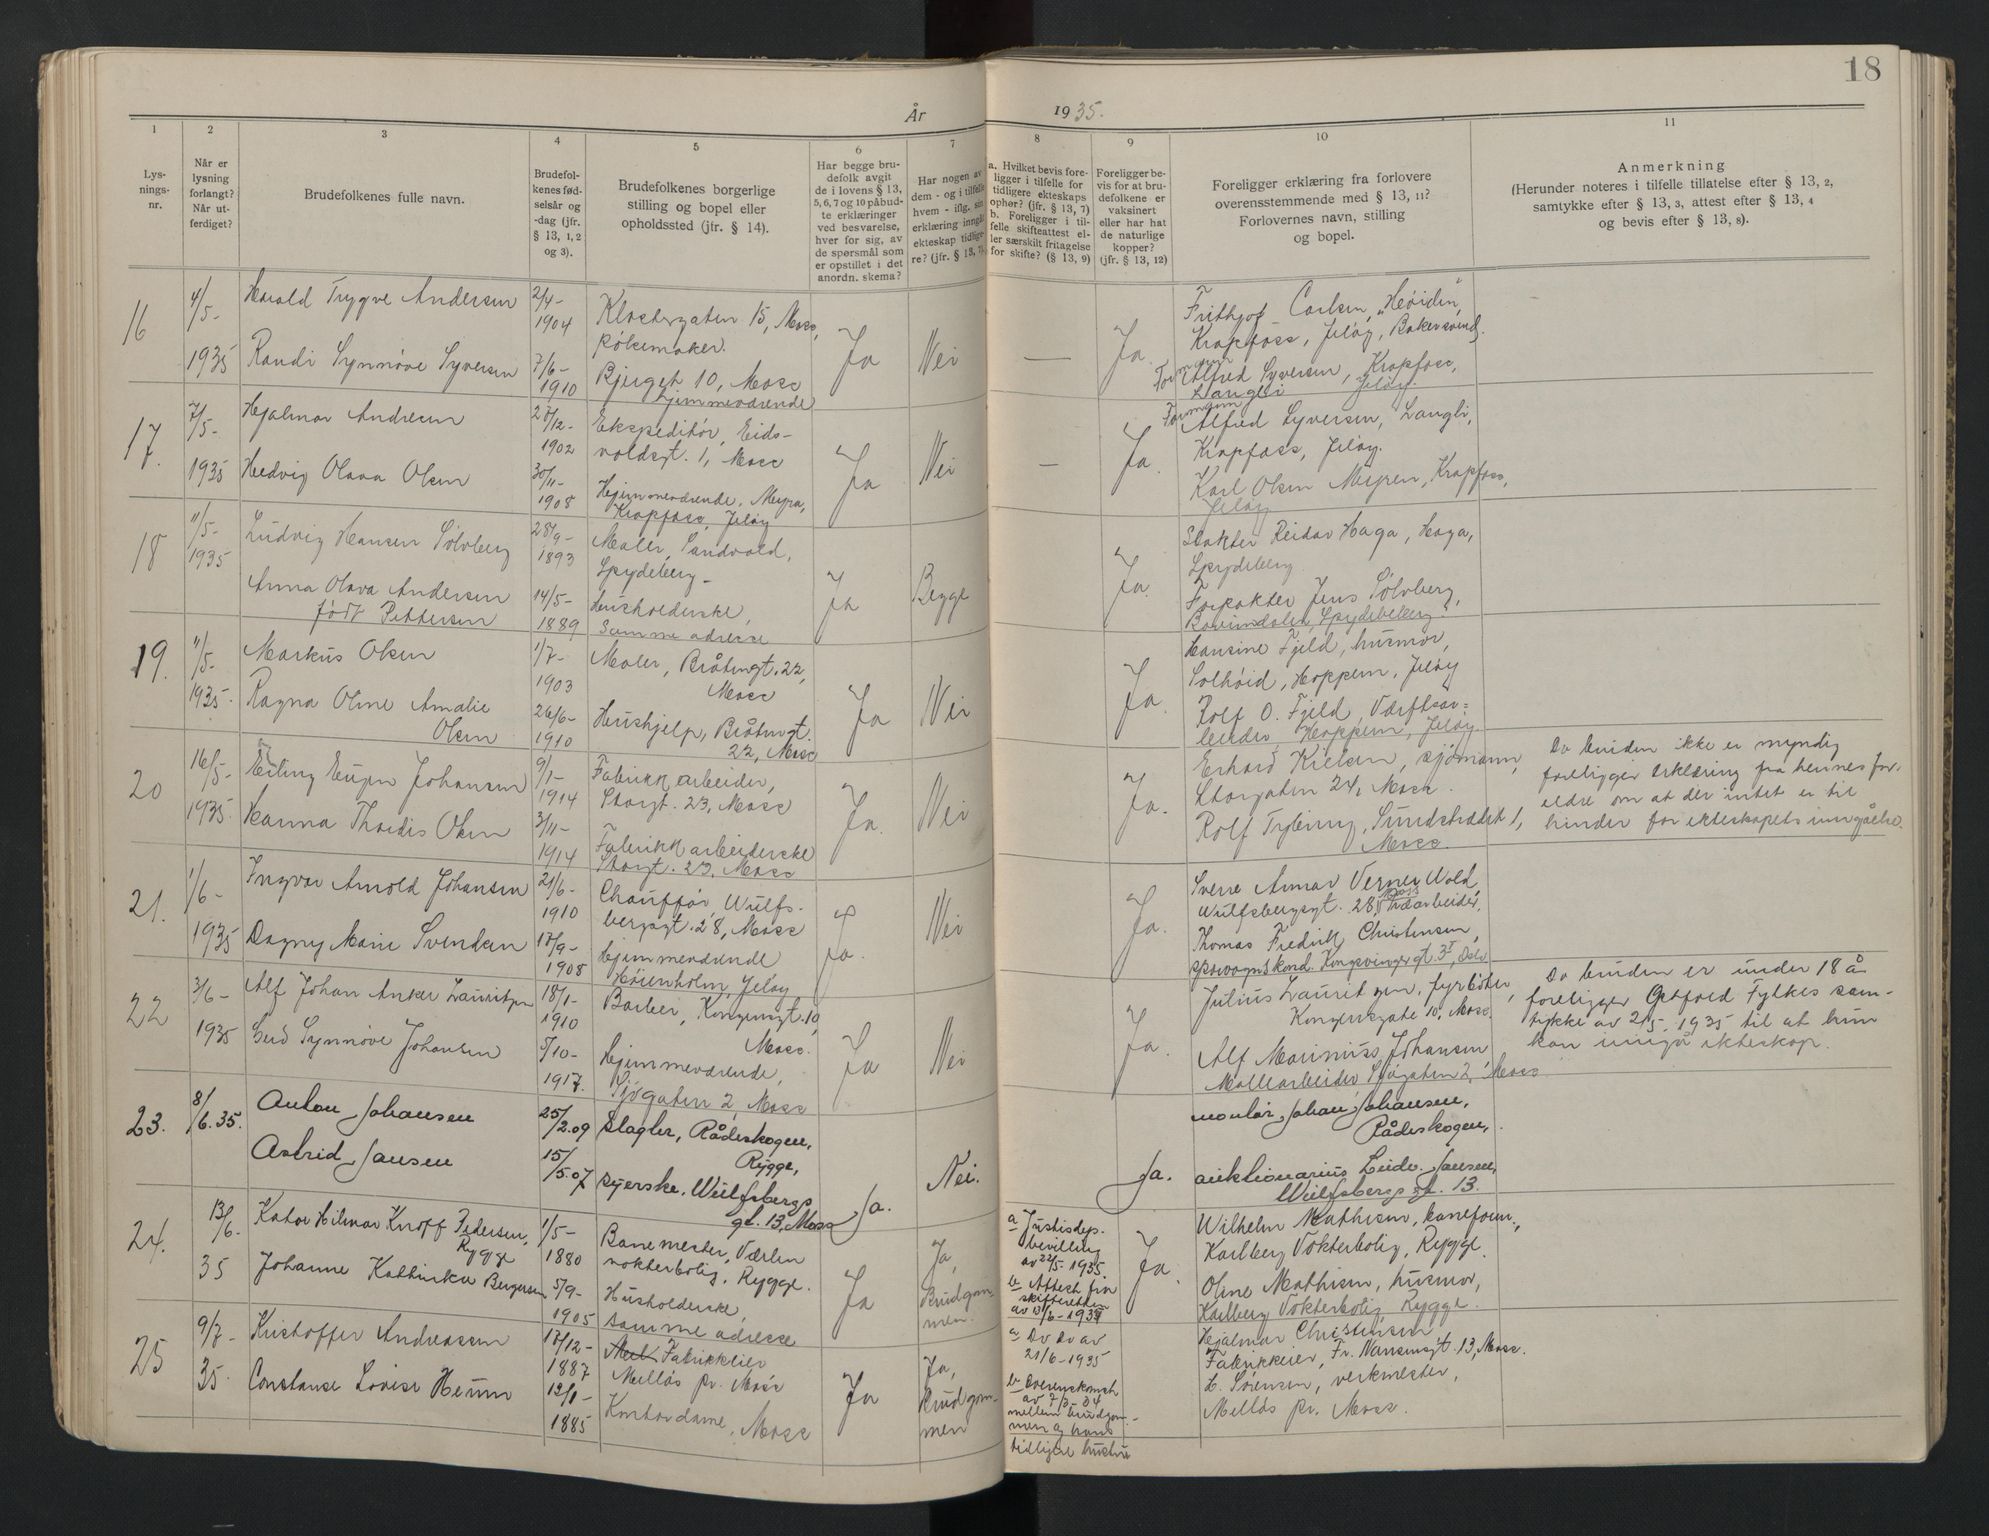 18
År 1935.
1 2 3 4 5 6 7 8 9 10 11
Lys-
nings-
nr.
Når er
lysning
forlangt?
Når ut-
ferdiget?
Brudefolkenes fulle navn.
Brudefol-
kenes fød-
selsår og
-dag (jfr.
§ 13, 1, 2
og 3).
Brudefolkenes borgerlige
stilling og bopel eller
opholdssted (jfr. § 14).
Har begge bru-
defolk avgit
de i lovens § 13,
5, 6, 7 og 10 påbud-
te erklæringer
ved besvarelse,
hver for sig, av
de spørsmål som
er opstillet i det
anordn. skema?
Har nogen av
dem - og i tilfelle
hvem - iflg. sin
erklæring inngått
ekteskap tidlige-
re? (jfr. § 13, 7).
a. Hvilket bevis fore-
ligger i tilfelle for
tidligere ekteskaps
ophør? (jfr. § 13, 7)
b. Foreligger i til-
felle skifteattest el-
ler særskilt fritagelse
for skifte? (§ 13, 9)
Foreligger be-
vis for at bru-
defolkene er
vaksinert
eller har hat
de naturlige
kopper?
(jfr. § 13, 12)
Foreligger erklæring fra forlovere
overensstemmende med § 13, 11?
Forlovernes navn, stilling
og bopel.
Anmerkning
(Herunder noteres i tilfelle tillatelse efter § 13, 2,
samtykke efter § 13, 3, attest efter § 13, 4
og bevis efter § 13, 8).
16
4/5-
1935
Harald Trygve Andersen
Randi Synnøve Syversen
2/4-
1904
7/6-
1910
Klostergaten 15, Moss,
pølsemaker.
Bjerget 10, Moss
hjemmeværende
Ja
Nei
—
Ja.
Frithjof Carlsen, "Heiden",
Krapfoss, Jeløy, Bakersvend.
Formann Alfred Syversen, Krapfoss,
Langli Jeløy.
17.
7/5-
1935
Hjalmar Andresen
Hedvig Olava Olsen
28/12-
1902
30/11-
1908
Ekspeditør, Eids-
voldsgt. 1, Moss
Hjemmeværende, Myra,
Krapfoss, Jeløy
Ja
Nei
—
Ja.
Formann
Alfred Syversen, Langli,
Krapfoss, Jeløy.
Karl Olsen Myren, Krapfoss,
Jeløy
18
11/5-
1935
Ludvig Hansen Sølvberg
Anna Olava Andersen
født Pettersen
28/9-
1893
14/5-
1889
Maler, Sandvold,
Spydeberg-
Husholderske,
Samme adresse
Ja
Begge
Ja.
Slakter Reidar Haga, Haga,
Spydeberg.
Forpakter Jens Sølvberg,
19.
11/5-
1935
Markus Olsen
Ragna Oline Amalie
Olsen
1/7-
1903
26/6-
1910
Maler, Bråtengt. 22,
Moss
Hushjelp, Bråtengt.
22, Moss
Ja
Nei
Ja.
Hansine Fjeld, husmor,
Solhøid, Hoppern, Jeløy
Rolf O. Fjeld, Værftsar-
beider Hoppern, Jeløy
20
16/5-
1935
Erling Eugen Johansen
Hanna Thordis Olsen
9/1-
1914
3/11-
1914
Fabrikkarbeider,
Storgt. 23, Moss
Fabrikkarbeiderske
Storgt. 23, Moss
Ja.
Nei
Ja.
Erhard Nielsen, sjømann,
Storgaten 24, Moss.
Rolf Tryting, Sundstrædet 1,
Moss.
Da bruden ikke er myndig
foreligger erklæring fra hennes for-
eldre om at der intet er til
hinder for ekteskapets inngåelse.
21.
1/6-
1935
Ingvar Arnold Johansen
Dagny Marie Svendsen
21/6-
1910
17/9-
1908
Chauffør, Wulfs-
bergsgt. 28, Moss
Hjemmeværende
Høienholm, Jeløy
Ja.
Nei
Ja.
Sverre Annar Verner Wold,
Wulfsbergsgt. 28, Moss arbeider,
Thomas Fredrik Christensen,
sporvognskond. Kongsvingergt. 3, Oslo
22
3/6-
1935
Alf Johan Anker Lauritzen
Gerd Synnøve Johansen
18/1-
1910
5/10-
1917.
Barber, Kongensgt. 10,
Moss.
Hjemmeværende,
Sjøgaten 2, Moss
Ja
Nei
Ja.
Julius Lauritzen, fyrbøter,
Kongensgate 10, Moss.
Alf Marinius Johansen
Møllearbeider Sjøgaten 2, Moss
Da bruden er under 18 år
foreligger Østfold Fylkes sam-
tykke av 2/5 1935 til at hun
kan inngå ekteskap.
23.
8/6.35.
Anton Johansen
Astrid Jansen
25/2.09
15/5.07
Slagter, Rådeskogen,
Rygge,
syerske. Wulfsbergs
gt. 13, Moss
Ja.
Nei.
Ja.
montør Johan Johansen,
Rådeskogen,
auktionarius Leidv. Jansen,
Wulfsbergs gt. 13.
24.
13/6.
35
Kator Hilmar Knoff Pedersen,
Rygge
Johanne Kathinka Bergersen
1/5-
1880
5/9-
1905
Banemester, Værlen
vokterbolig, Rygge.
Husholderske,
samme adresse
Ja
Ja,
Brudgom-
men.
a Justisdeps.
bevilling
av 22/5-1935.
b Attest fra
skifteretten
av 13/6-1934
Ja.
Wilhelm Mathisen, baneform.,
Karlberg Vokterbolig, Rygge.
Oline Mathisen, husmor,
Karlberg Vokterbolig Rygge.
25
9/7-
35.
Kristoffer Andreassen
Constanse Lovise Henum
17/12-
1887
12/1-
1885
Fabrikkeier
Melløs pr. Moss
Kontordame, Moss
Ja
Ja,
Brudgom-
men
a Do Do av
21/6-1935
b Overenskomst
av 7/3-34
mellem brudgom-
men og hans
tidligere hustru
Hjalmar Christensen
Fabrikkeier, Fr. Nansensgt. 13, Moss.
L. Sørensen, verkmester,
Melløs pr. Moss.